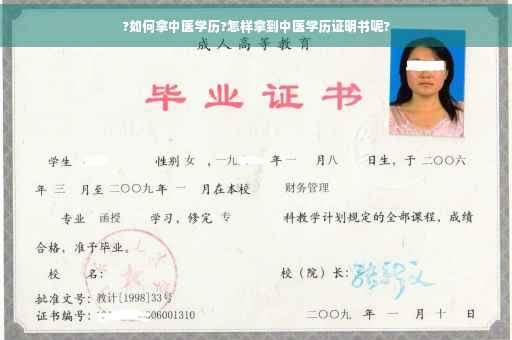 ?如何拿中医学历?怎样拿到中医学历证明书呢?
成人高等教育
毕业证书
学生 性别 女 ，一九 年 一 月八 日生，于 二〇〇六
年 三 月至 二〇〇九 年 一 月在本校 财务管理
专业 函授 学习，修完 专 科教学计划规定的全部课程，成绩
合格，准予毕业。
校 名： 校（院）长：
批准文号：教计[1998]33号
证书编号： 06001310 二〇〇九 年 一 月 十 日